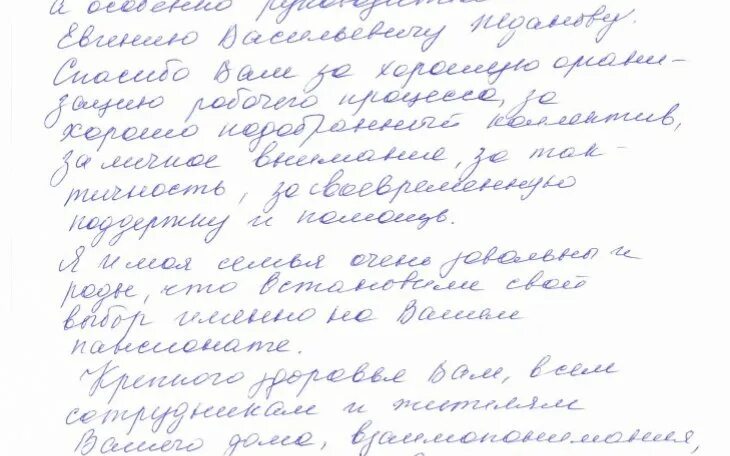 и особенно руководителю
Евгению Васильевичу Жданову.
Спасибо Вам за хорошую органи-
зацию рабочего процесса, за
хорошо подобранный коллектив,
за личное внимание, за так-
тичность, за своевременную
поддержку и помощь.
Я и моя семья очень довольны и
рады, что встановили свой
выбор именно на Вашем
пансионате.
Крепкого здоровья Вам, всем
сотрудникам и жителям
Вашего дома, взаимопонимания,